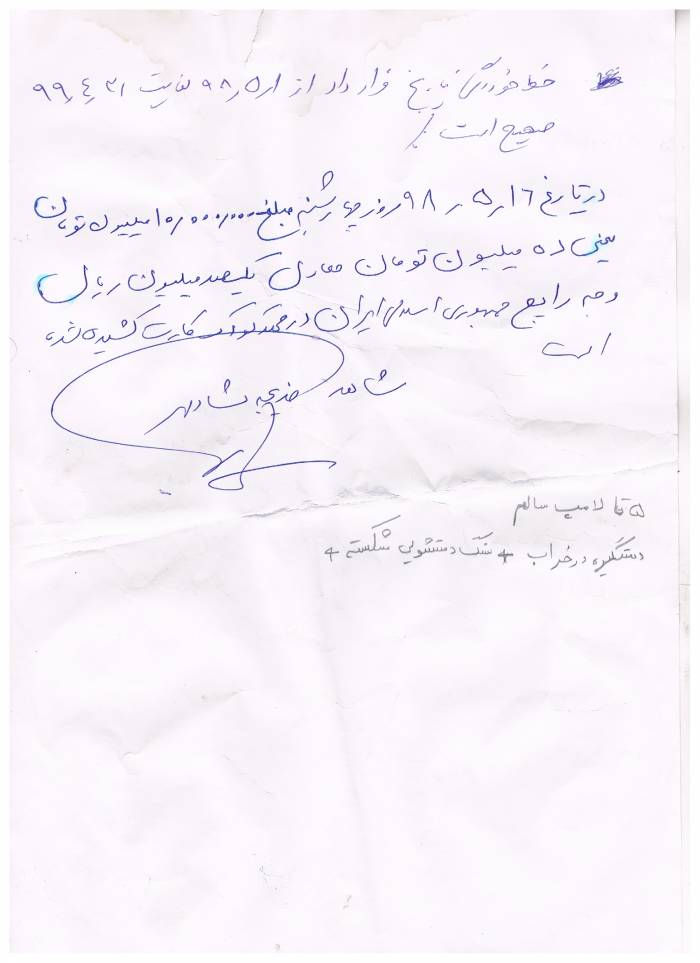 خط خوردگی تاریخ قرار داد از ۹۸٫۵٫۱ لغایت ۹۹٫٤٫۳۱
صحیح است
در تاریخ ۹۸٫۵٫۱٦ روز چهارشنبه مبلغ ۱۰٫۰۰۰٫۰۰۰ میلیون تومان
یعنی ده میلیون تومان معادل یکصد میلیون ریال
وجه رایج جمهوری اسلامی ایران در کارت کشیده شده
است
شاهد خدیجه
۵ تا لامپ سالم
دستگیره در خراب + سنگ دستشویی شکسته +